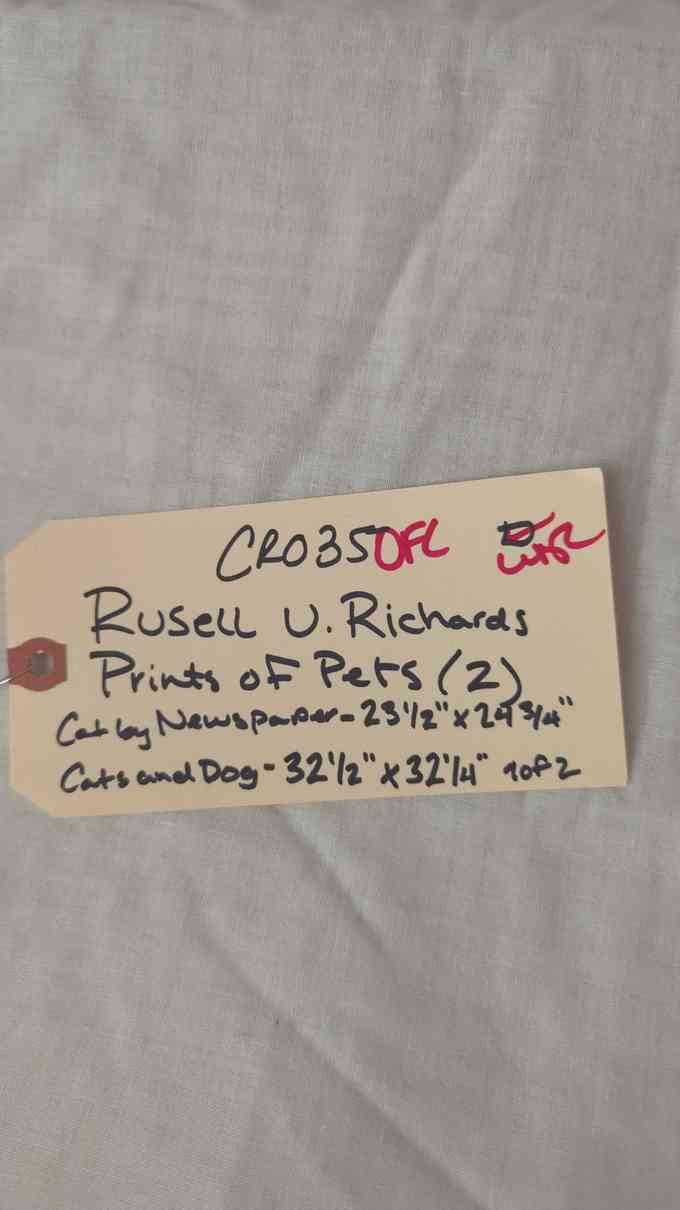 CR035OFL
Rusell U. Richards
Prints of Pets (2)
Cat by Newspaper - 23 1/2" x 24 3/4"
Cats and Dog - 32 1/2" x 32 1/4" 1 of 2